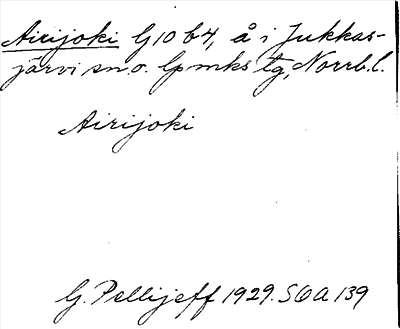 Airijoki G10 b4, å i Jukkas-
järvi sn o. lpmks tg, Norrb. l.
Airijoki
G. Pellijeff 1929. SOA 139